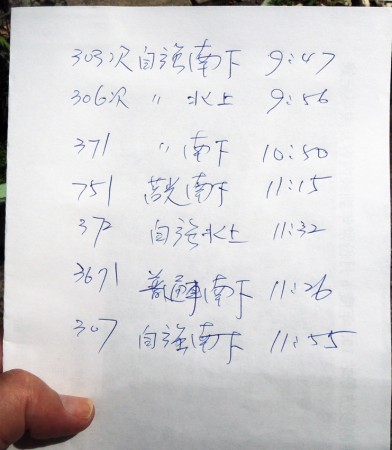 303次自強南下 9:47
306次 〃 北上 9:56
371 〃 南下 10:50
751 莒光南下 11:15
372 自強北上 11:32
3671 普通車南下 11:26
307 自強南下 11:55